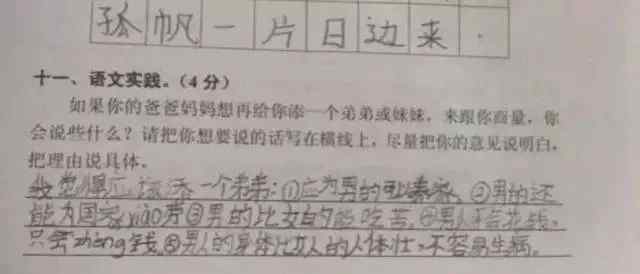 孤帆一片日边来.
十一、语文实践。(4分)
如果你的爸爸妈妈想再给你添一个弟弟或妹妹，来跟你商量，你
会说些什么？请把你想要说的话写在横线上，尽量把你的意见说明白，
把理由说具体。
我觉得应该添一个弟弟:①应为男的可以 ②男的还
能为国家xiào劳③男的比女的能吃苦。④男人不会花钱，
只会zhèng钱。⑤男人的身体比女人的人体壮，不容易生病。